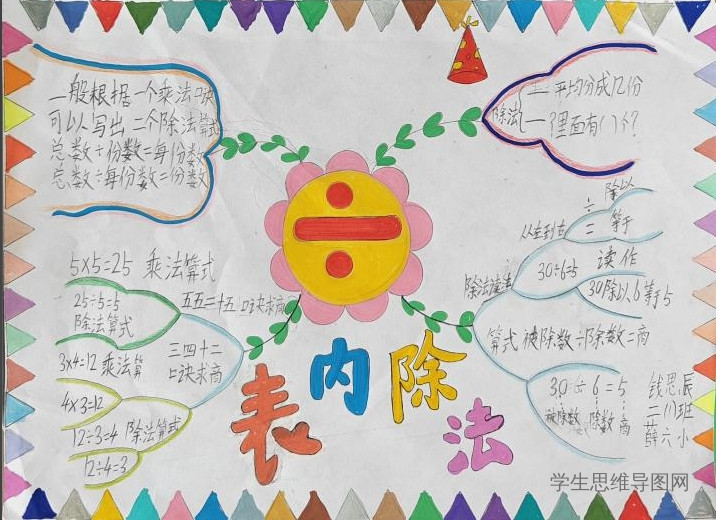 一般根据一个乘法口诀
可以写出二个除法算式
总数÷份数=每份数
总数÷每份数=份数
除法
平均分成几份
?里面有()个?
5×5=25 乘法算式
25÷5=5
除法算式
五五二十五 口诀求商
3×4=12 乘法算
三四十二
口诀求商
4×3=12
12÷3=4 除法算式
12÷4=3
从左到右
÷ 除以
= 等于
30÷6=5
读作
30除以6等于5
算式 被除数÷除数=商
30÷6=5
被除数 除数 商
表内除法
钱思辰
二(1)班
薛六小
学生思维导图网